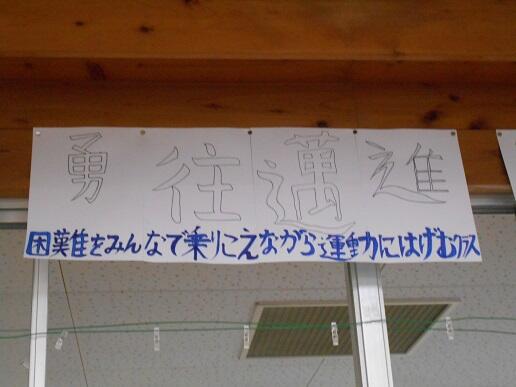 勇往邁進
困難をみんなで乗りこえながら運動にはげむクラス